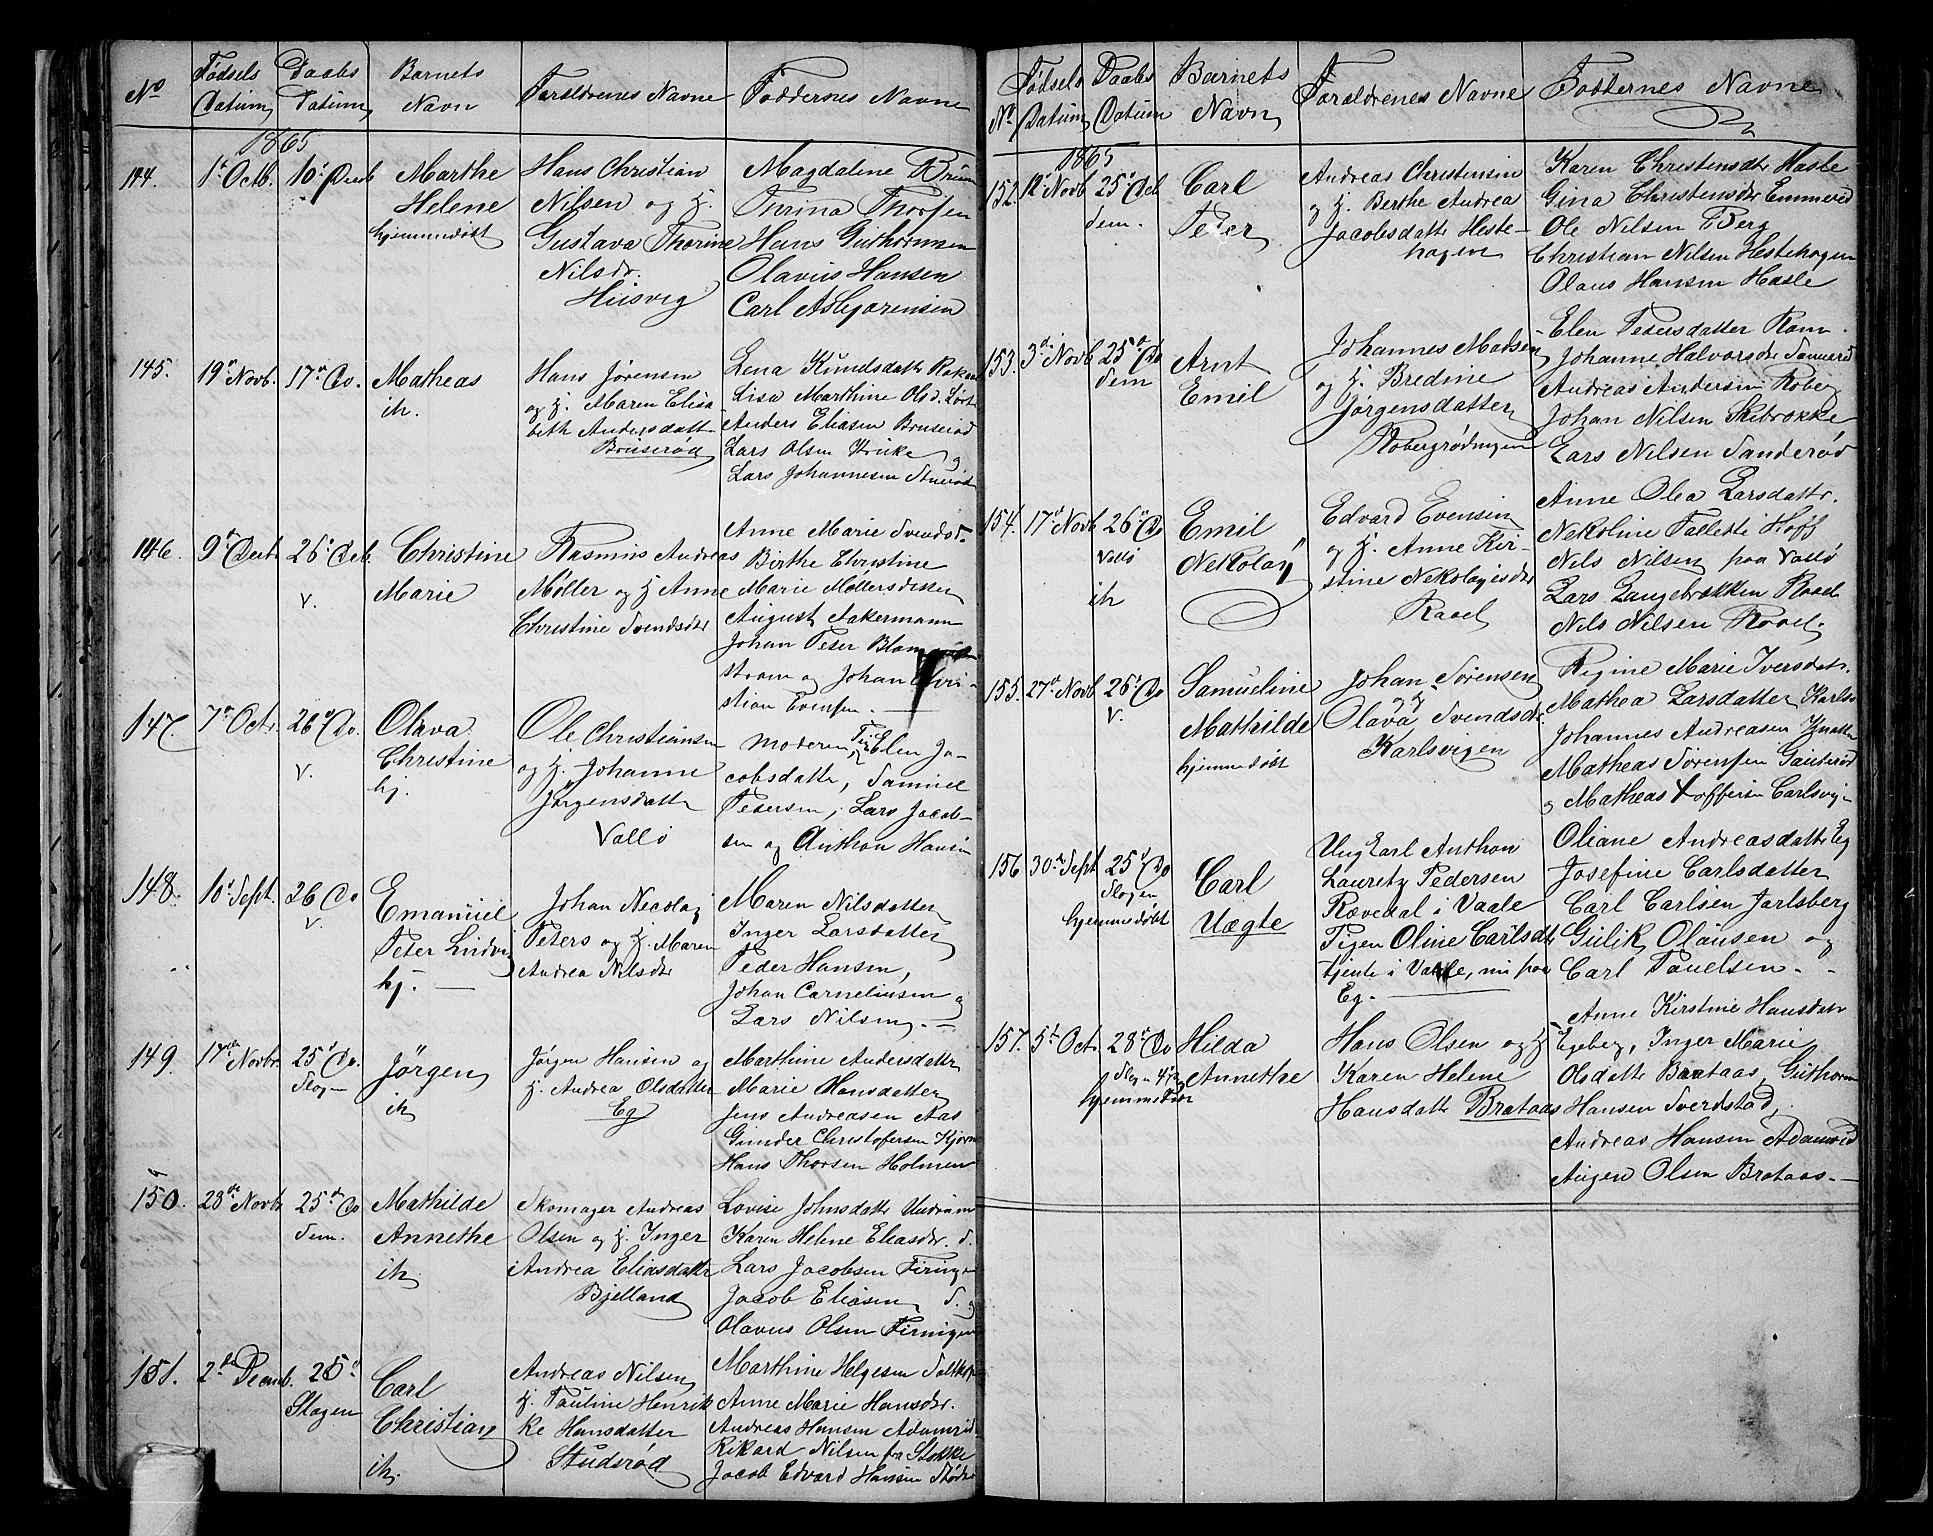 No
Fødsels Datum
Daabs Datum
Barnets Navn
Foraldrenes Navne
Faddernes Navne
1865
144.
1ste Octb.
10de Decb
Marthe
Helene
hjemmedøbt
Hans Christian
Nilsen og H.
Gustava Thorine
Nilsdr.
Husvig
Magdalene Bruun
Thrina Thorsen
Hans Guthormsen
Olavus Hansen
Carl Asbjørensen
145.
19de Novb.
17de Do.
Matheas
ik.
Hans Jørensen
og H. Maren Elisa
beth Andersdatt
Bruserød
Lena Knudsdatt
Lisa Marthine Olsd.
Anders Eliasen Bruserød
Lars Olsen og
Lars Johannesen
146.
9de Decb
26de Decb.
V.
Christine
Marie
Rasmus Andreas
Møller og H Anne
Christine Svendsdr
Anne Marie Svendsd.
Birthe Christine
Marie Møllers
August Aakermann
Johan Peter Blomquist
strøm og Johan Chri-
stian Evensen.
147.
7de Oct.
26de Do.
V.
Olava
Christine
hj.
Ole Christiansen
og H. Johanne
Jørgensdatt
Vallø
Moderen Elen Ja-
cobsdatte, Samuel
Petersen, Lars Jacob-
sen og Anthon Hansen
148.
10de Sept.
26 Do
V.
Emanuel
Peter Lindvig
hj.
Johan Necolay
Peters og H. Maren
Andrea Nilsdr
Maren Nilsdatter
Inger Larsdatter
Peder Hansen,
Johan Carneliusen og
Lars Nilsen.
149.
17de Novbr.
25de Do.
Slagen
Jørgen
ik
Jørgen Hansen og
H. Andrea Olsdatter
Eg
Marthine Andersdatte
Marie Hansdatter
Jens Andreasen Aas
Gunder Christofersen
Hans Thorsen Holmen
150.
28de Novb
25de Do
Sem.
Mathilde
Annethe
ik
Skomager Andreas
Olsen og H. Inger
Andrea Eliasdatte
Bjelland
Lovise Johnsdatte Undrum
Karen Helene Eliasdr. d.
Lars Jacobsen Firingen
Jacob Eliasen d. og
Olavus Olsen Firingen
151.
2de Decemb.
25de
Slagen
Carl
Christian
ik.
Andreas Nilsen
H. Pauline Henrik
ke Hansdatter
Studerød
Marthine Helgesen
Anne Marie Hansdr.
Andreas Hansen Adamrød
Rikard Nilsen fra Stokke
Jacob Edvard Hansen
No
Fødsels Datum
Daabs Datum
Barnets Navn
Foraldrenes Navne
Fadternes Navne
1865
152.
12te Novb
25de Deb
Sem.
Carl
Peter
Andreas Christensen
og H. Berthe Andrea
Jacobsdatte Heste-
hagen
Karen Christensdtr Hasle
Gina Christensdtr Emmerød
Ole Nilsen Berg
Christian Nilsen Hestehagen
Olaus Hansen Hasle
153.
3de Novb
25de Do
Sem
Arnt
Emil
Johannes Matsen
og H. Bredine
Jørgensdatter
Robergrødningen
Elen Petersdatter Ram.
Johanne Halvorsdtr
Andreas Andersen Roberg
Johan Nilsen Skibrokke
Lars Nilsen Sanderød
154.
17de Novb
26de Do
Vallø
ik
Emil
Nekolay
Edvard Evensen
og H. Anne Kir-
stine Nekolayisdtr
Rael
Anne Olea Larsdattr.
Nekoline Tallette Hoff
Nils Nilsen paa Vallø
Lars Langebrekken Rael
Nils Nilsen Rael.
155.
27de Novb
26de Do
V.
Samueline
Mathilde
hjemmedøbt
Johan Sørensen
og
Olava Svendsdtr
Karlsvigen
Regine Marie Iversdatr.
Mathea Larsdatter Karlsv
Johannes Andreasen
Matheas Sørensen Gauterød
og Matheas Kofferin Carlsvig-
156
30te Sept
25de Do
Slagen
hjemmedøbt
Carl
Uægte
Ung Carl Anthon
Lauretz Pedersen
Rævedal i Vaale
Pigen Oline Carlsdtr
tjente i Vaale, nu paa
Eg.
Oliane Andreasdatte Eg
Josefine Carlsdatter
Carl Carlsen Jarlsberg
Gulik Olausen og
Carl Paulsen.
157.
5te Oct.
28de Do
Slagn
hjemmedøbt
Hilda
Annethe
Hans Olsen og H
Karen Helene
Hansdatte Brataas
Anne Kirstine Hansdatr
Egeberg, Inger Marie
Olsdatte Brataas, Guthorm
Hansen Sverdstad,
Andreas Hansen Adamrød
Augen Olsen Brataas.